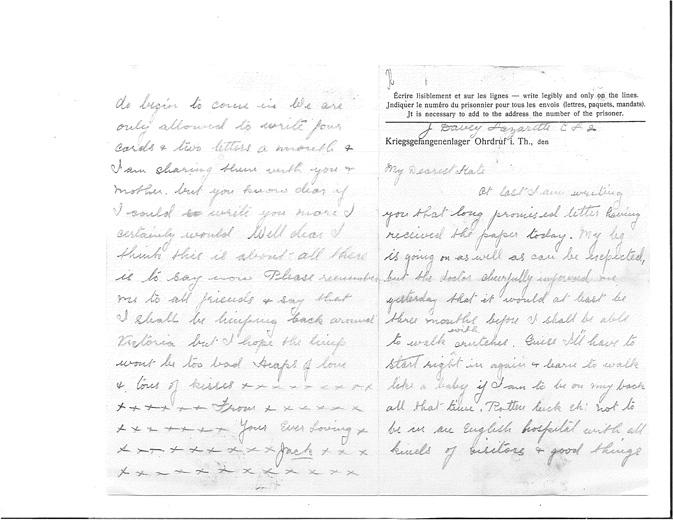 do begin to come in We are
only allowed to write four
cards & two letters a month &
I am sharing them with you &
mother. but you know dear if
I could write you more I
certainly would Well dear I
think this is about all there
is to say now Please remember
me to all friends & say that
I shall be limping back around
Victoria but I hope the limp
wont be too bad Heaps of love
& tons of kisses x x x x x x x x x
x x x x x x From x x x x x x
x x x x x x Your Ever Loving x
x x x x x x x x x Jack x x x
x x x x x x x x x x x x
Écrire lisiblement et sur les lignes — write legibly and only on the lines.
Jndiquer le numéro du prisonnier pour tous les envois (lettres, paquets, mandats).
Jt is necessary to add to the address the number of the prisoner.
J Davey Lazarette
Kriegsgefangenenlager Ohrdruf i. Th., den
My Dearest Kate
At last I am writing
you that long promised letter having
received the paper today. My leg
is going on as well as can be expected,
but the doctor cheerfully informed me
yesterday that it would at least be
three months before I shall be able
to walk with crutches. Guess I'll have to
start right in again & learn to walk
like a baby if I am to be on my back
all that time. Rotten luck eh! not to
be in an English hospital with all
kinds of visitors & good things